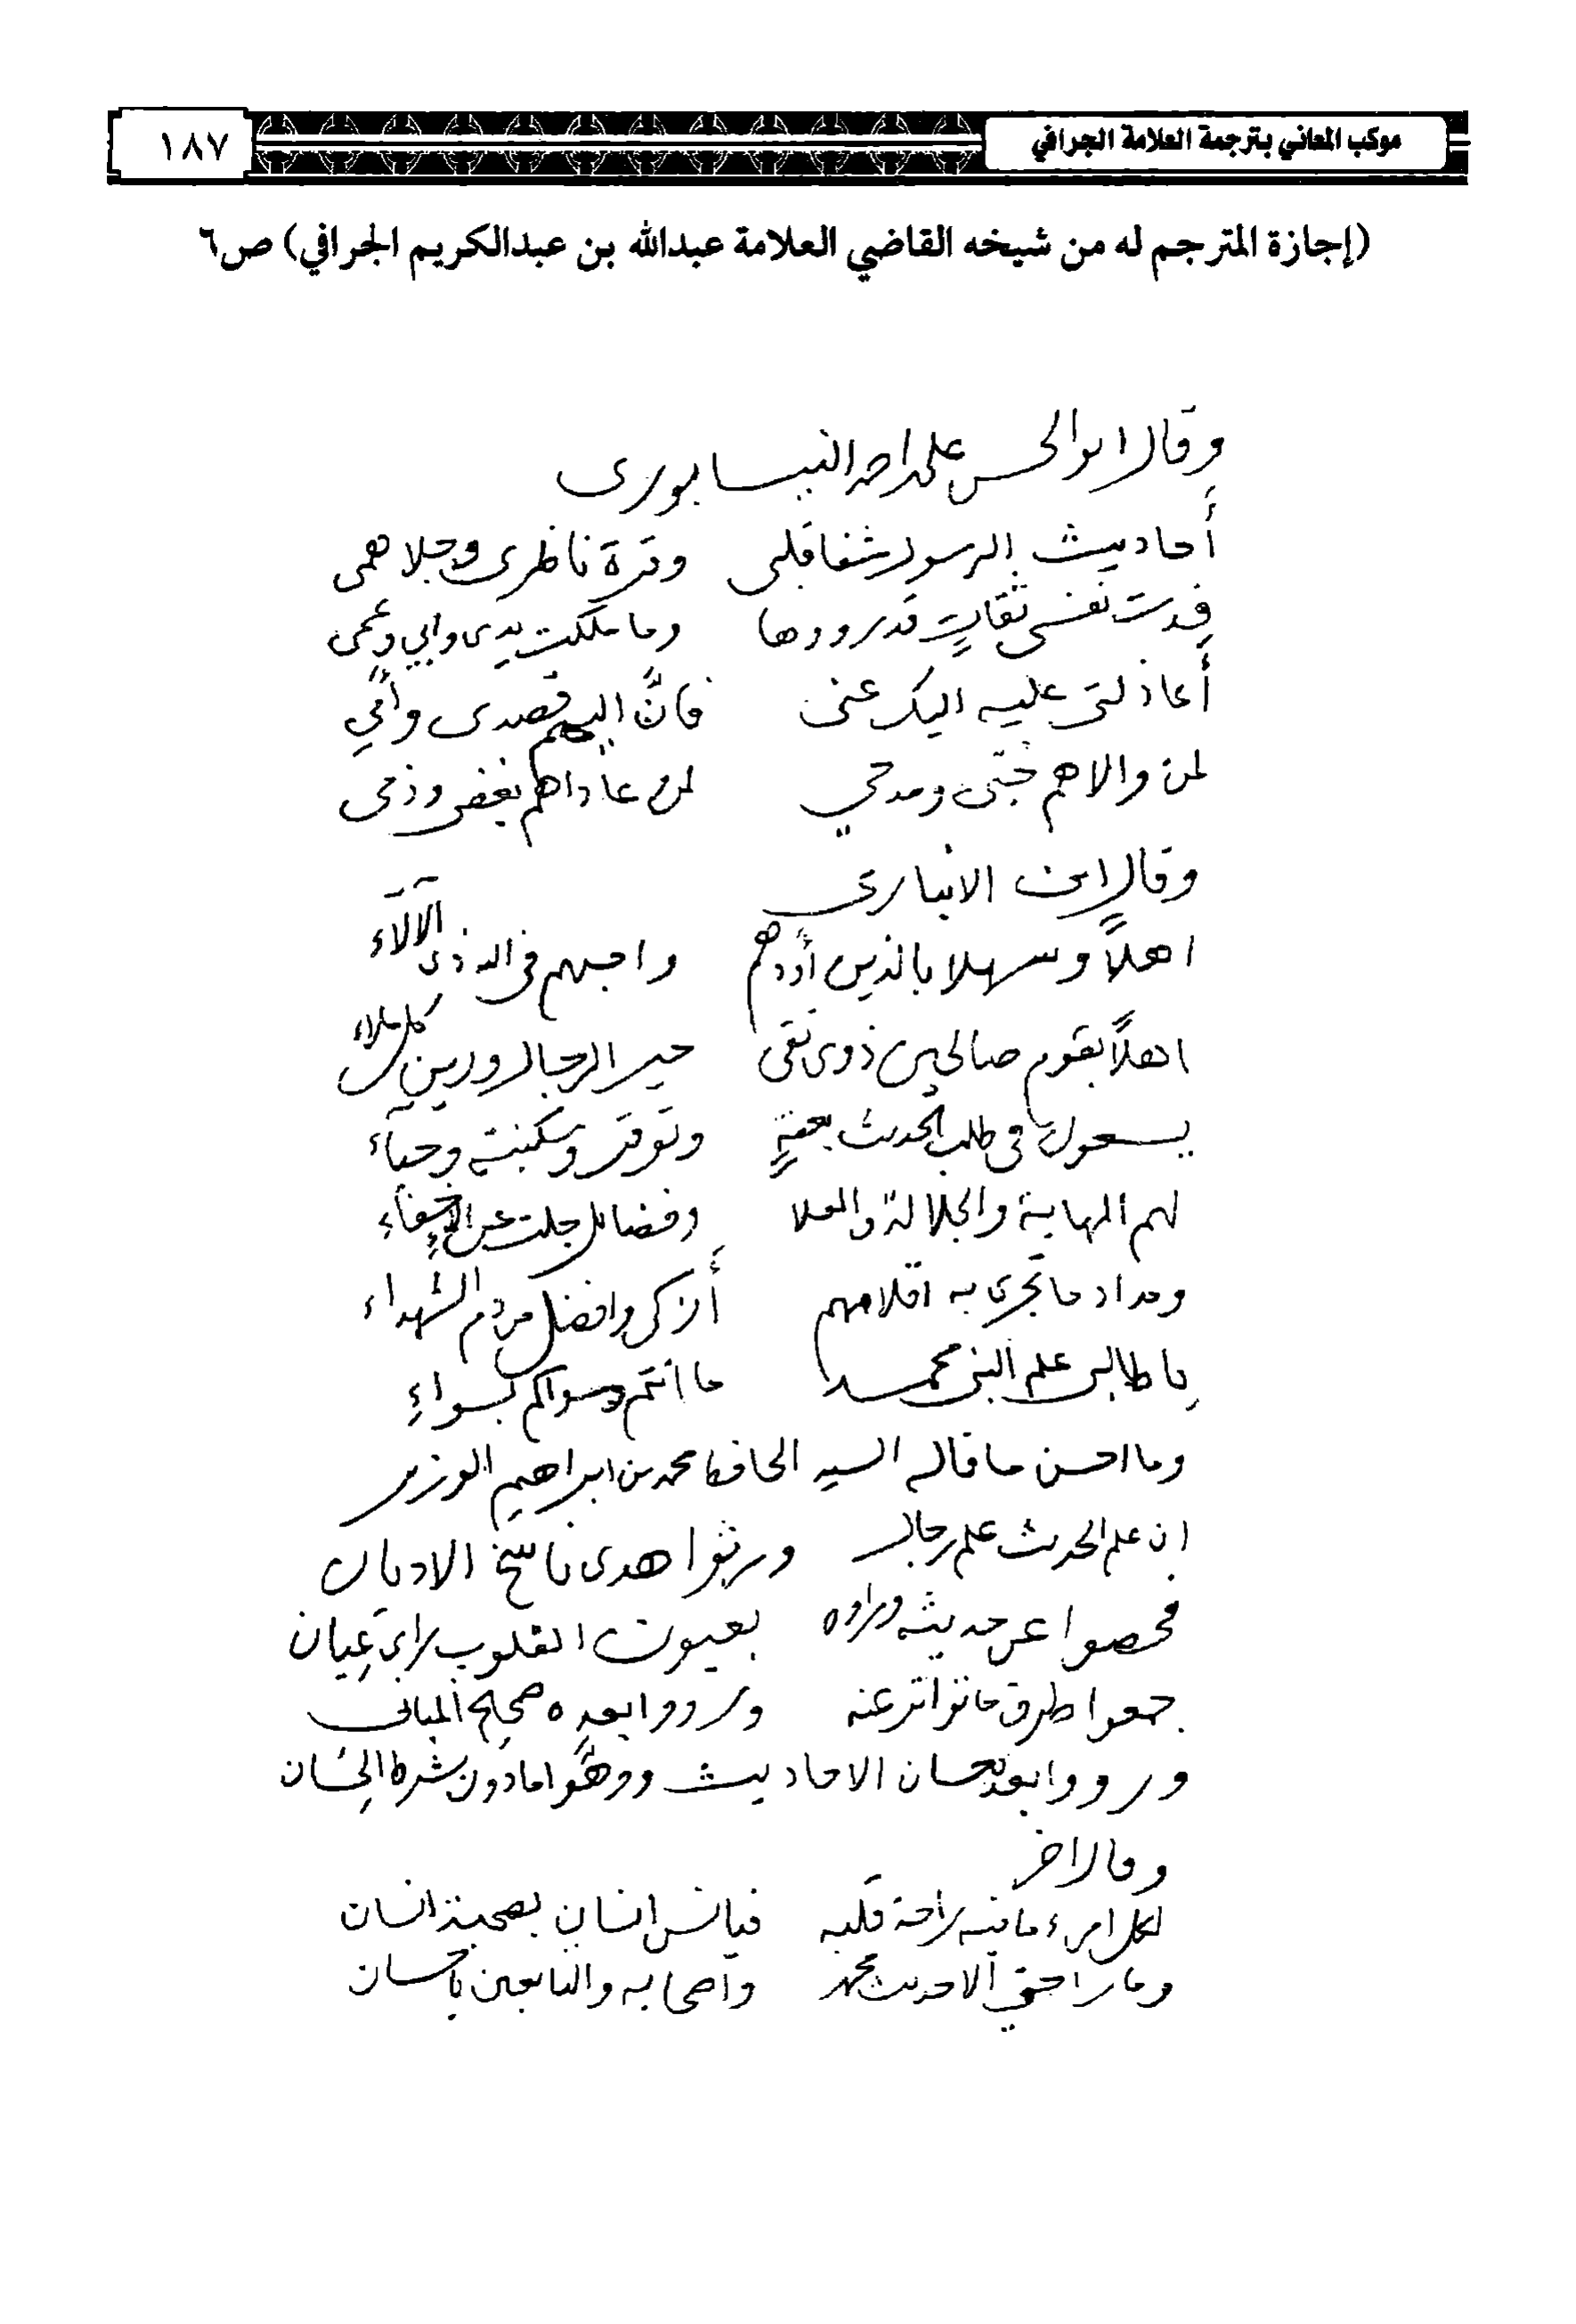 موكب المعاني بترجمة العلامة الجرافي ١٨٧
(إجازة المترجم له من شيخه القاضي العلامة عبدالله بن عبدالكريم الجرافي) ص٦
وقال ابو الحسن على احمد النيسابورى
أحاديث الرسول شفا قلبى وقرة ناظرى وجلا همى
فدت نفسى ثقات قد رووها وما ملكت يدى وابي وعمى
أعاذلتى عليه اليك عنى فانَّ اليهم قصدى وأمّي
لمن والاهم حبّى ومدحي لمن عاداهم بغضى وذمى
وقال ابن الانبارى
اهلاً وسهلا بالذين أودهم واحبهم فى الله ذى الآلآء
اهلاً بقوم صالحين ذوى تقى خير الرجال وزين كل ملاء
يسعون فى طلب الحديث بعفةٍ وتوقر وسكينة وحيآء
لهم المهابة والجلالة والعلا وفضائل جلت عن الإخفآء
ومداد ما تجرى به اقلامهم أزكى وافضل من دم الشهداء
يا طالبى علم النبى محمد ما انتم وسواكم بسواءِ
وما احسن ما قاله السيد الحافظ محمد بن ابراهيم الوزير
ان علم الحديث علم رجال ورثوا هدى ناسخ الاديان
فحصوا عن حديثه ورواه بعيون القلوب عِيان
جمعوا طرق ما تواتر عنه ورووا بعده صحيح المبانى
ورووا بعد حسان الاحاديث ووهَّوا ما دون شرط الحِسَان
وقال اخر
لكل امرء ما فيه راحة قلبه فيانس انسان بصحبة انسان
وما راحتي الا حديث محمد واصحابه والتابعين باحسان